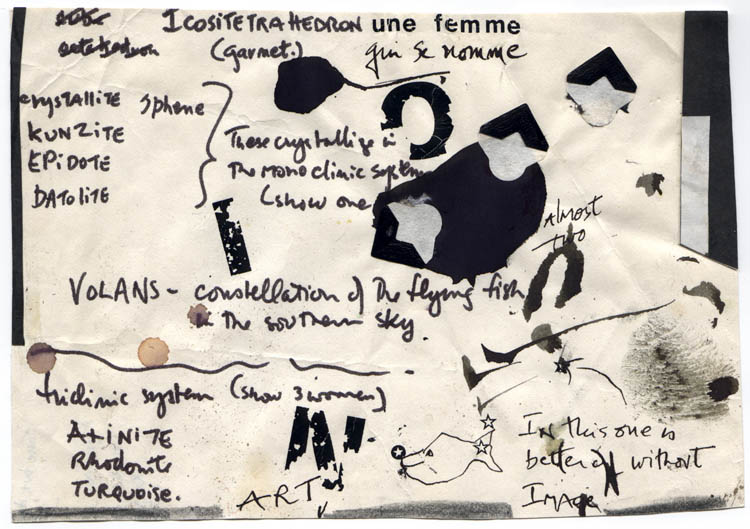 ICOSITETRAHEDRON une femme
octahedron (garnet.) qui se nomme
crystallite Sphene
KUNZITE
EPIDOTE
DATOLITE
These crystallize in
the monoclinic system
(show one
Almost
Two
VOLANS - constellation of the flying fish
in the southern sky.
triclinic system (show 3 women)
AXINITE
Rhodonite
TURQUOISE.
ART
In this one is
better off without
IMAGE